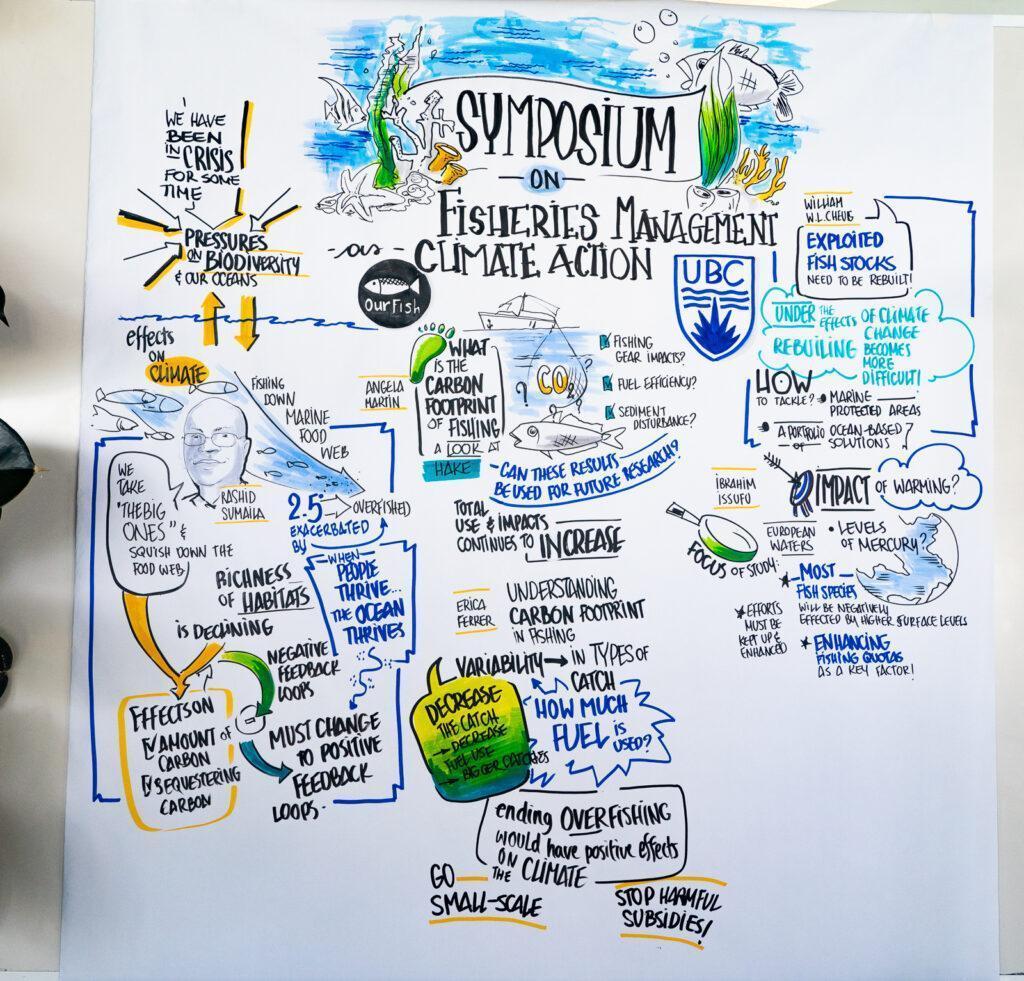 SYMPOSIUM
ON
FISHERIES MANAGEMENT
-as- CLIMATE ACTION
OurFish
UBC
WE HAVE
BEEN
IN CRISIS
FOR SOME
TIME
PRESSURES
ON BIODIVERSITY
& OUR OCEANS
effects
ON
CLIMATE
FISHING
DOWN
MARINE
FOOD
WEB
RASHID
SUMAILA
WE
TAKE
"THE BIG
ONES" &
SQUISH DOWN THE
FOOD WEB
2.5 → OVERFISHED
EXACERBATED
BY
WHEN
PEOPLE
THRIVE...
THE OCEAN
THRIVES
RICHNESS
OF HABITATS
IS DECLINING
NEGATIVE
FEEDBACK
LOOPS
EFFECTS ON
AMOUNT OF
CARBON
SEQUESTERING
CARBON
MUST CHANGE
TO POSITIVE
FEEDBACK
LOOPS-
ANGELA
MARTIN
WHAT
IS THE
CARBON
FOOTPRINT
OF FISHING
A LOOK AT
HAKE
?
CO2
?
FISHING
GEAR IMPACTS?
FUEL EFFICIENCY?
SEDIMENT
DISTURBANCE?
-CAN THESE RESULTS
BE USED FOR FUTURE RESEARCH?
TOTAL
USE & IMPACTS
CONTINUES TO INCREASE
ERICA
FERRER
UNDERSTANDING
CARBON FOOTPRINT
IN FISHING
VARIABILITY → IN TYPES OF
CATCH
DECREASE
THE CATCH
→ DECREASE
FUEL USE
→ BIGGER CATCHES
HOW MUCH
FUEL IS
USED?
ending OVERFISHING
would have positive effects
ON
THE CLIMATE
GO
SMALL-SCALE
STOP HARMFUL
SUBSIDIES!
WILLIAM
W.L. CHEUG
EXPLOITED
FISH STOCKS
NEED TO BE REBUILT!
UNDER THE EFFECTS OF CLIMATE
CHANGE
REBUILING BECOMES
MORE
DIFFICULT!
HOW
TO TACKLE?
MARINE
PROTECTED AREAS
A PORTFOLIO OCEAN-BASED
OF SOLUTIONS?
IBRAHIM
ISSUFU
IMPACT OF WARMING?
FOCUS OF STUDY:
EUROPEAN
WATERS
• LEVELS
OF MERCURY?
* MOST
FISH SPECIES
WILL BE NEGATIVELY
EFFECTED BY HIGHER SURFACE LEVELS
* EFFORTS
MUST BE
KEPT UP &
ENHANCED
* ENHANCING
FISHING QUOTAS
AS A KEY FACTOR!